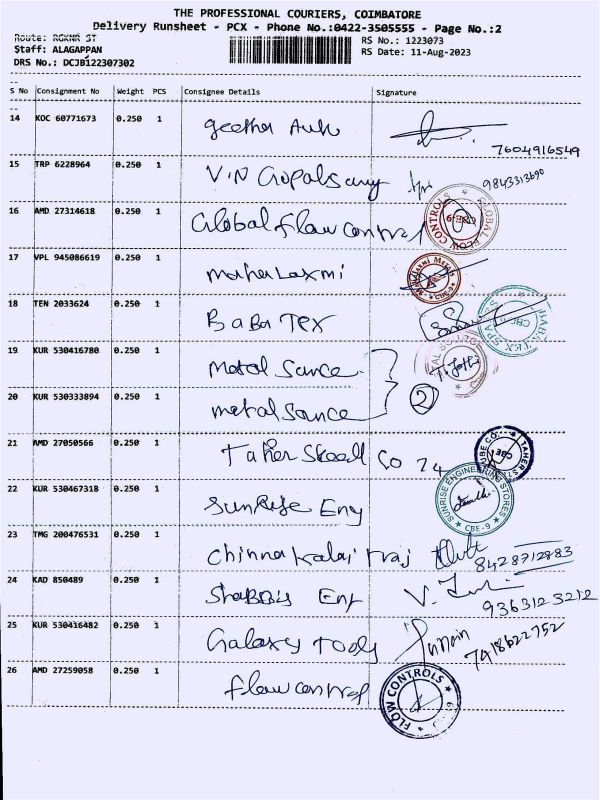 THE PROFESSIONAL COURIERS, COIMBATORE
Delivery Runsheet - PCX - Phone No.:0422-3505555 - Page No.:2
Route: RGKNR ST
RS No.: 1223073
Staff: ALAGAPPAN
RS Date: 11-Aug-2023
DRS No.: DCJB122307302
S No Consignment No Weight PCS Consignee Details Signature
14 KOC 60771673 0.250 1 Geetha
7604916549
15 TRP 6228964 0.250 1 V.N Gopalsamy
9843313690
16 AMD 27314618 0.250 1 Global flow control
GLOBAL FLOW CONTROLS
17 VPL 945086619 0.250 1 Maha Laxmi
18 TEN 2033624 0.250 1 BaBa Tex
19 KUR 530416780 0.250 1 Metal Sance
20 KUR 530333894 0.250 1 metal Sance
2
21 AMD 27050566 0.250 1 Taher
22 KUR 530467318 0.250 1 SunRise Eng
SUNRISE ENGINEERING STORES
CBE-9
23 TMG 200476531 0.250 1 Chinna
8428712883
24 KAD 850489 0.250 1 Eng
9363123212
25 KUR 530416482 0.250 1 Galaxy Tools
7418622752
26 AMD 27259058 0.250 1 flow control
FLOW CONTROLS